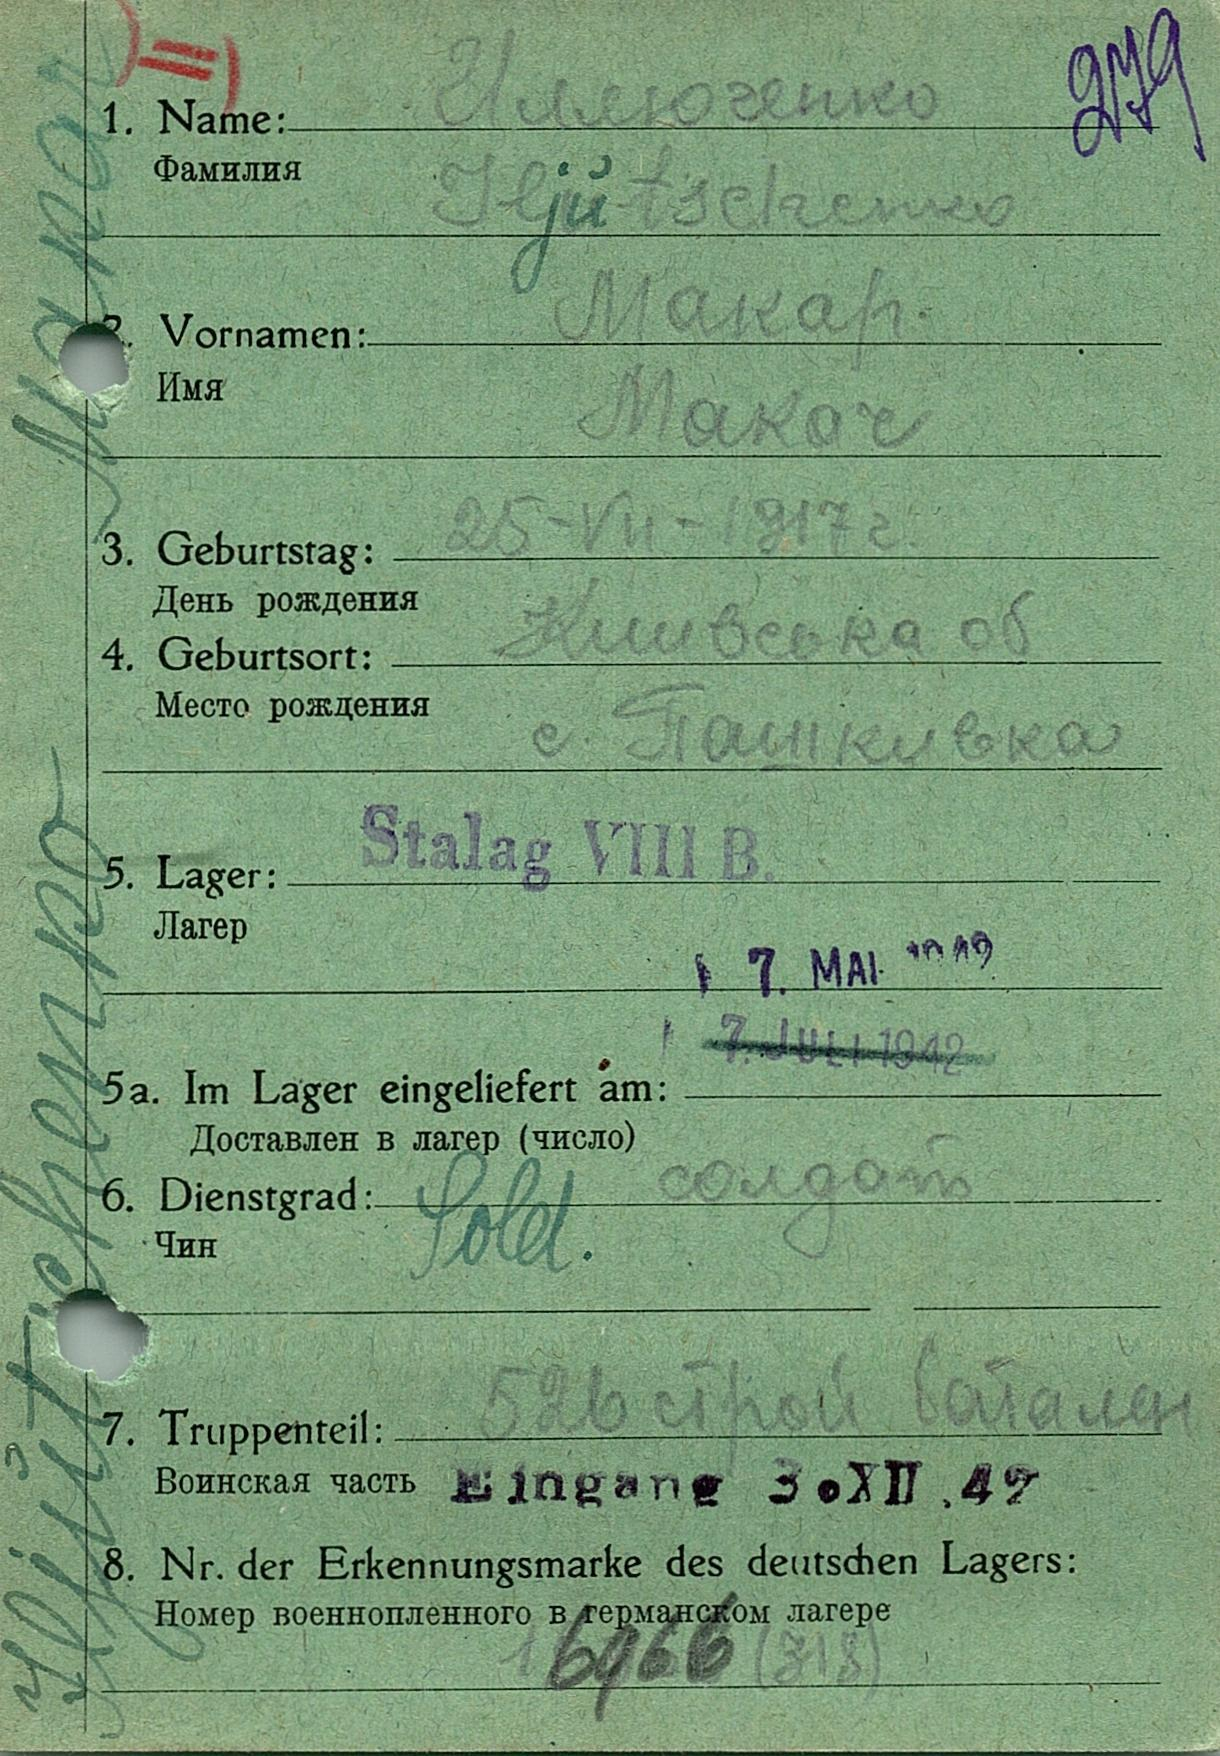 279
1. Name: Иллюченко
Фамилия
Iljutschenko
2. Vornamen: Макар.
Имя
Макаr
3. Geburtstag: 25-VII-1917 г.
День рождения
4. Geburtsort: Киивська об
Место рождения
с. Пашкивка
5. Lager: Stalag VIII B.
Лагер
7. MAI 1942
7. JULI 1942
5a. Im Lager eingeliefert am:
Доставлен в лагер (число)
6. Dienstgrad: Sold. солдат
Чин
7. Truppenteil: 526 строй батален
Воинская часть Eingang 3.XII.42
8. Nr. der Erkennungsmarke des deutschen Lagers:
Номер военнопленного в германском лагере
(318)
Iljutschenko Makar